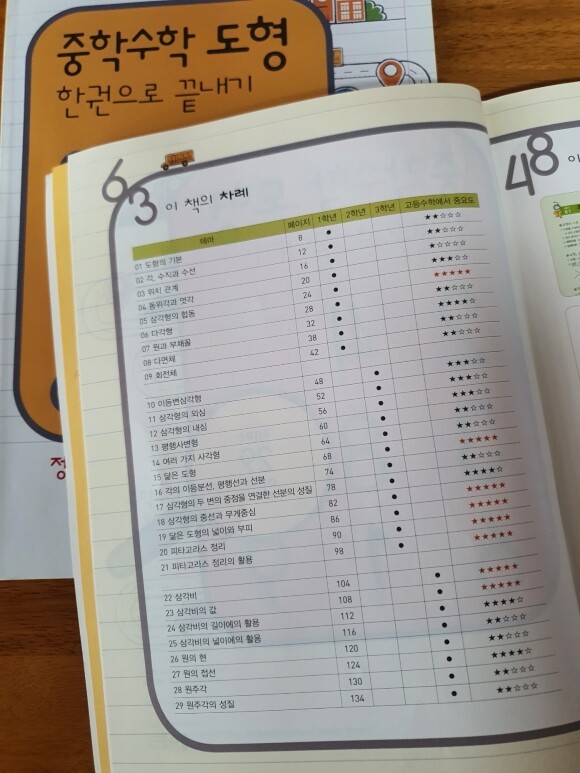 중학수학 도형
한권으로 끝내기
정
63 이 책의 차례
테마 페이지 1학년 2학년 3학년 고등수학에서 중요도
01 도형의 기본 8 ● ★★☆☆☆
02 각, 수직과 수선 12 ● ★★☆☆☆
03 위치 관계 16 ● ★☆☆☆☆
04 동위각과 엇각 20 ● ★★★☆☆
05 삼각형의 합동 24 ● ★★★★★
06 다각형 28 ● ★★☆☆☆
07 원과 부채꼴 32 ● ★★★★☆
08 다면체 38 ● ★★☆☆☆
09 회전체 42 ● ★★☆☆☆
10 이등변삼각형 48 ● ★★★☆☆
11 삼각형의 외심 52 ● ★★★☆☆
12 삼각형의 내심 56 ● ★★★☆☆
13 평행사변형 60 ● ★★☆☆☆
14 여러 가지 사각형 64 ● ★★☆☆☆
15 닮은 도형 68 ● ★★★★★
16 각의 이등분선, 평행선과 선분 74 ● ★★☆☆☆
17 삼각형의 두 변의 중점을 연결한 선분의 성질 78 ● ★★★★☆
18 삼각형의 중선과 무게중심 82 ● ★★★★★
19 닮은 도형의 넓이와 부피 86 ● ★★★★★
20 피타고라스 정리 90 ● ★★★★★
21 피타고라스 정리의 활용 98 ● ★★★★★
22 삼각비 104 ● ★★★★★
23 삼각비의 값 108 ● ★★★★★
24 삼각비의 길이에의 활용 112 ● ★★★★☆
25 삼각비의 넓이에의 활용 116 ● ★★☆☆☆
26 원의 현 120 ● ★★☆☆☆
27 원의 접선 124 ● ★★★★☆
28 원주각 130 ● ★★☆☆☆
29 원주각의 성질 134 ● ★★☆☆☆
48 이